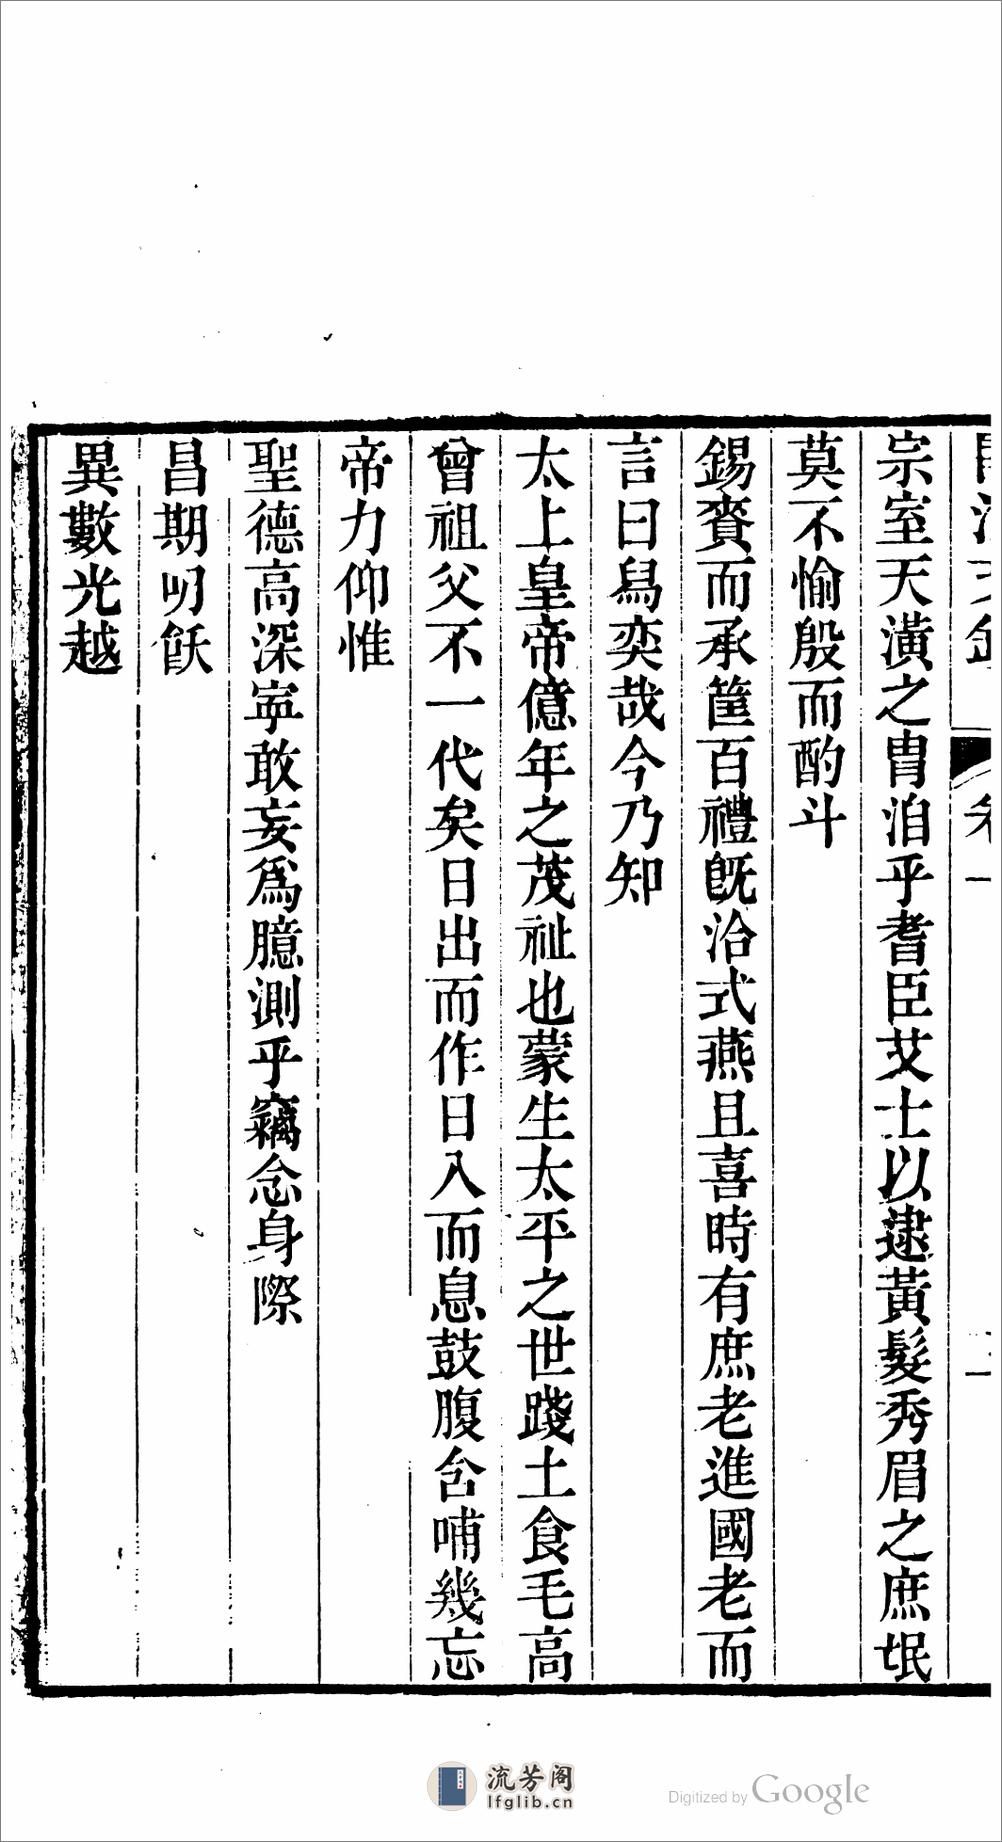 宗室天潢之胄洎乎耆臣艾士以逮黃髮秀眉之庶氓
莫不愉殷而酌斗
錫賚而承筐百禮旣洽式燕且喜時有庶老進國老而
言曰舄奕哉今乃知
太上皇帝億年之茂祉也蒙生太平之世踐土食毛高
曾祖父不一代矣日出而作日入而息鼓腹含哺幾忘
帝力仰惟
聖德高深寧敢妄爲臆測乎竊念身際
昌期叨飫
異數光越
流芳阁
lfglib.cn
Digitized by Google